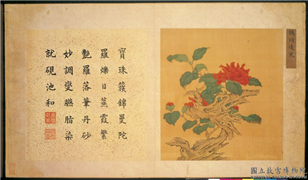 寶珠簇錦曼陀
羅爍日蒸霞繁
豔羅落筆丹砂
妙調變臙脂染
就硯池和
國立故宮博物院